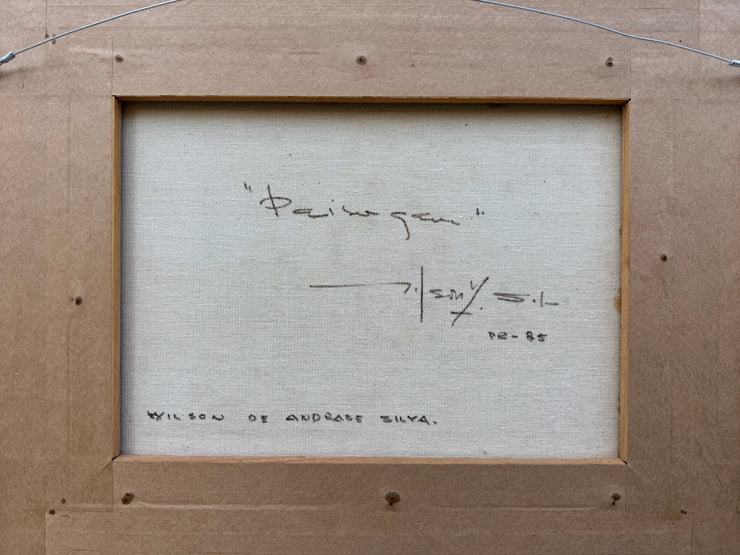 "Paisagem"
PR-85
WILSON DE ANDRADE SILVA.